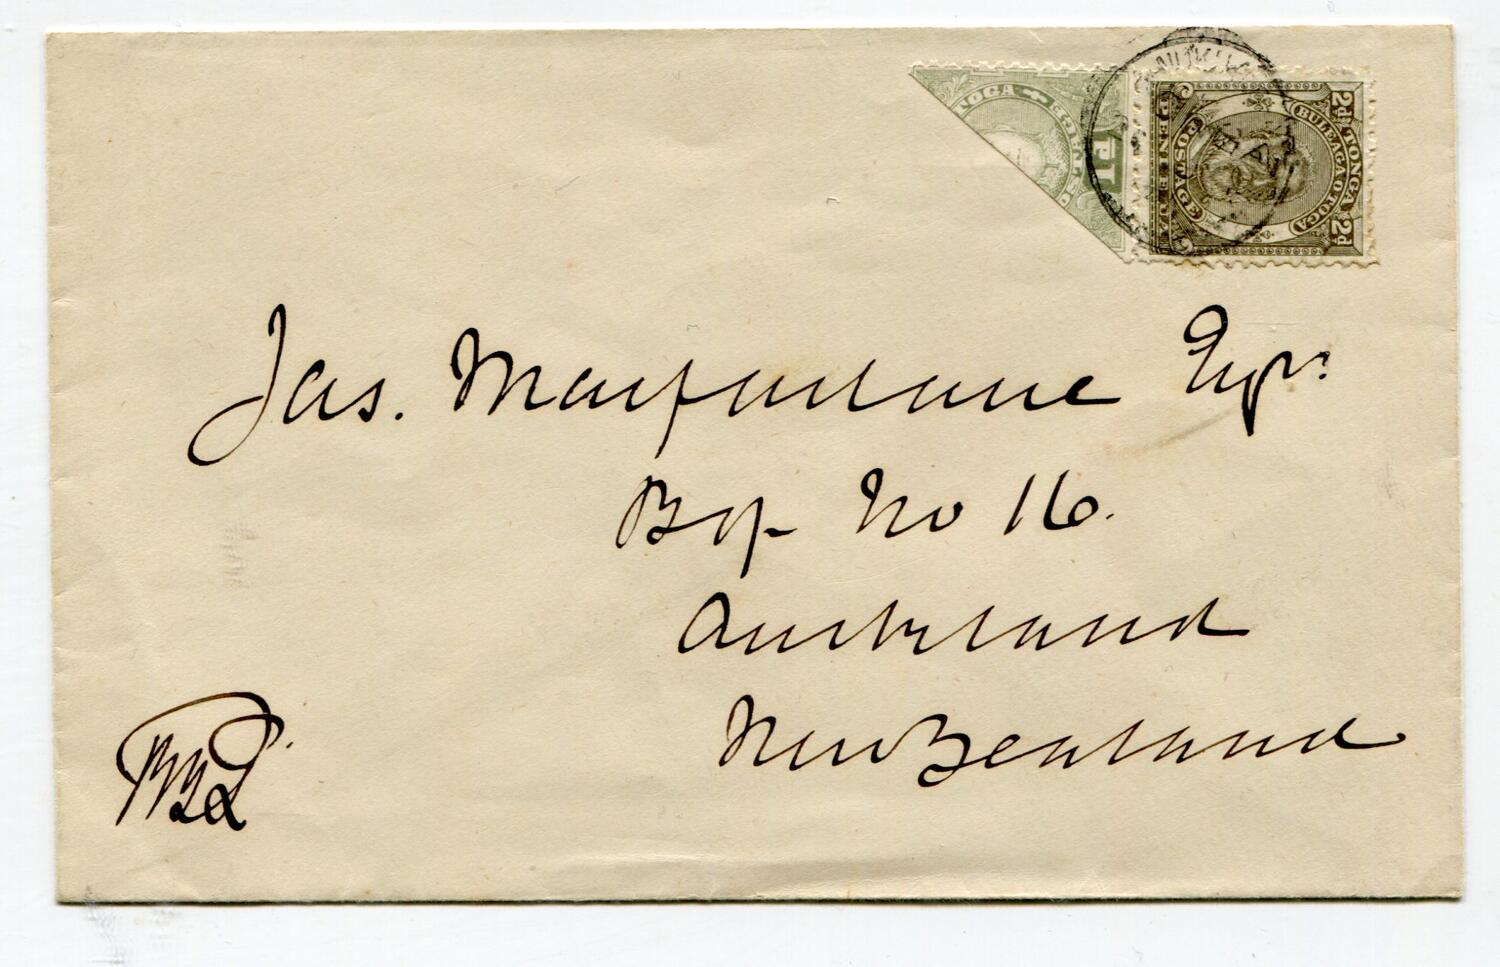 TOGA
2d TONGA 2d
BULEAGA O TOGA
POSTAGE
PENI E UA
Jas. Macfarlane Esqr.
Box No 16.
Auckland
New Zealand